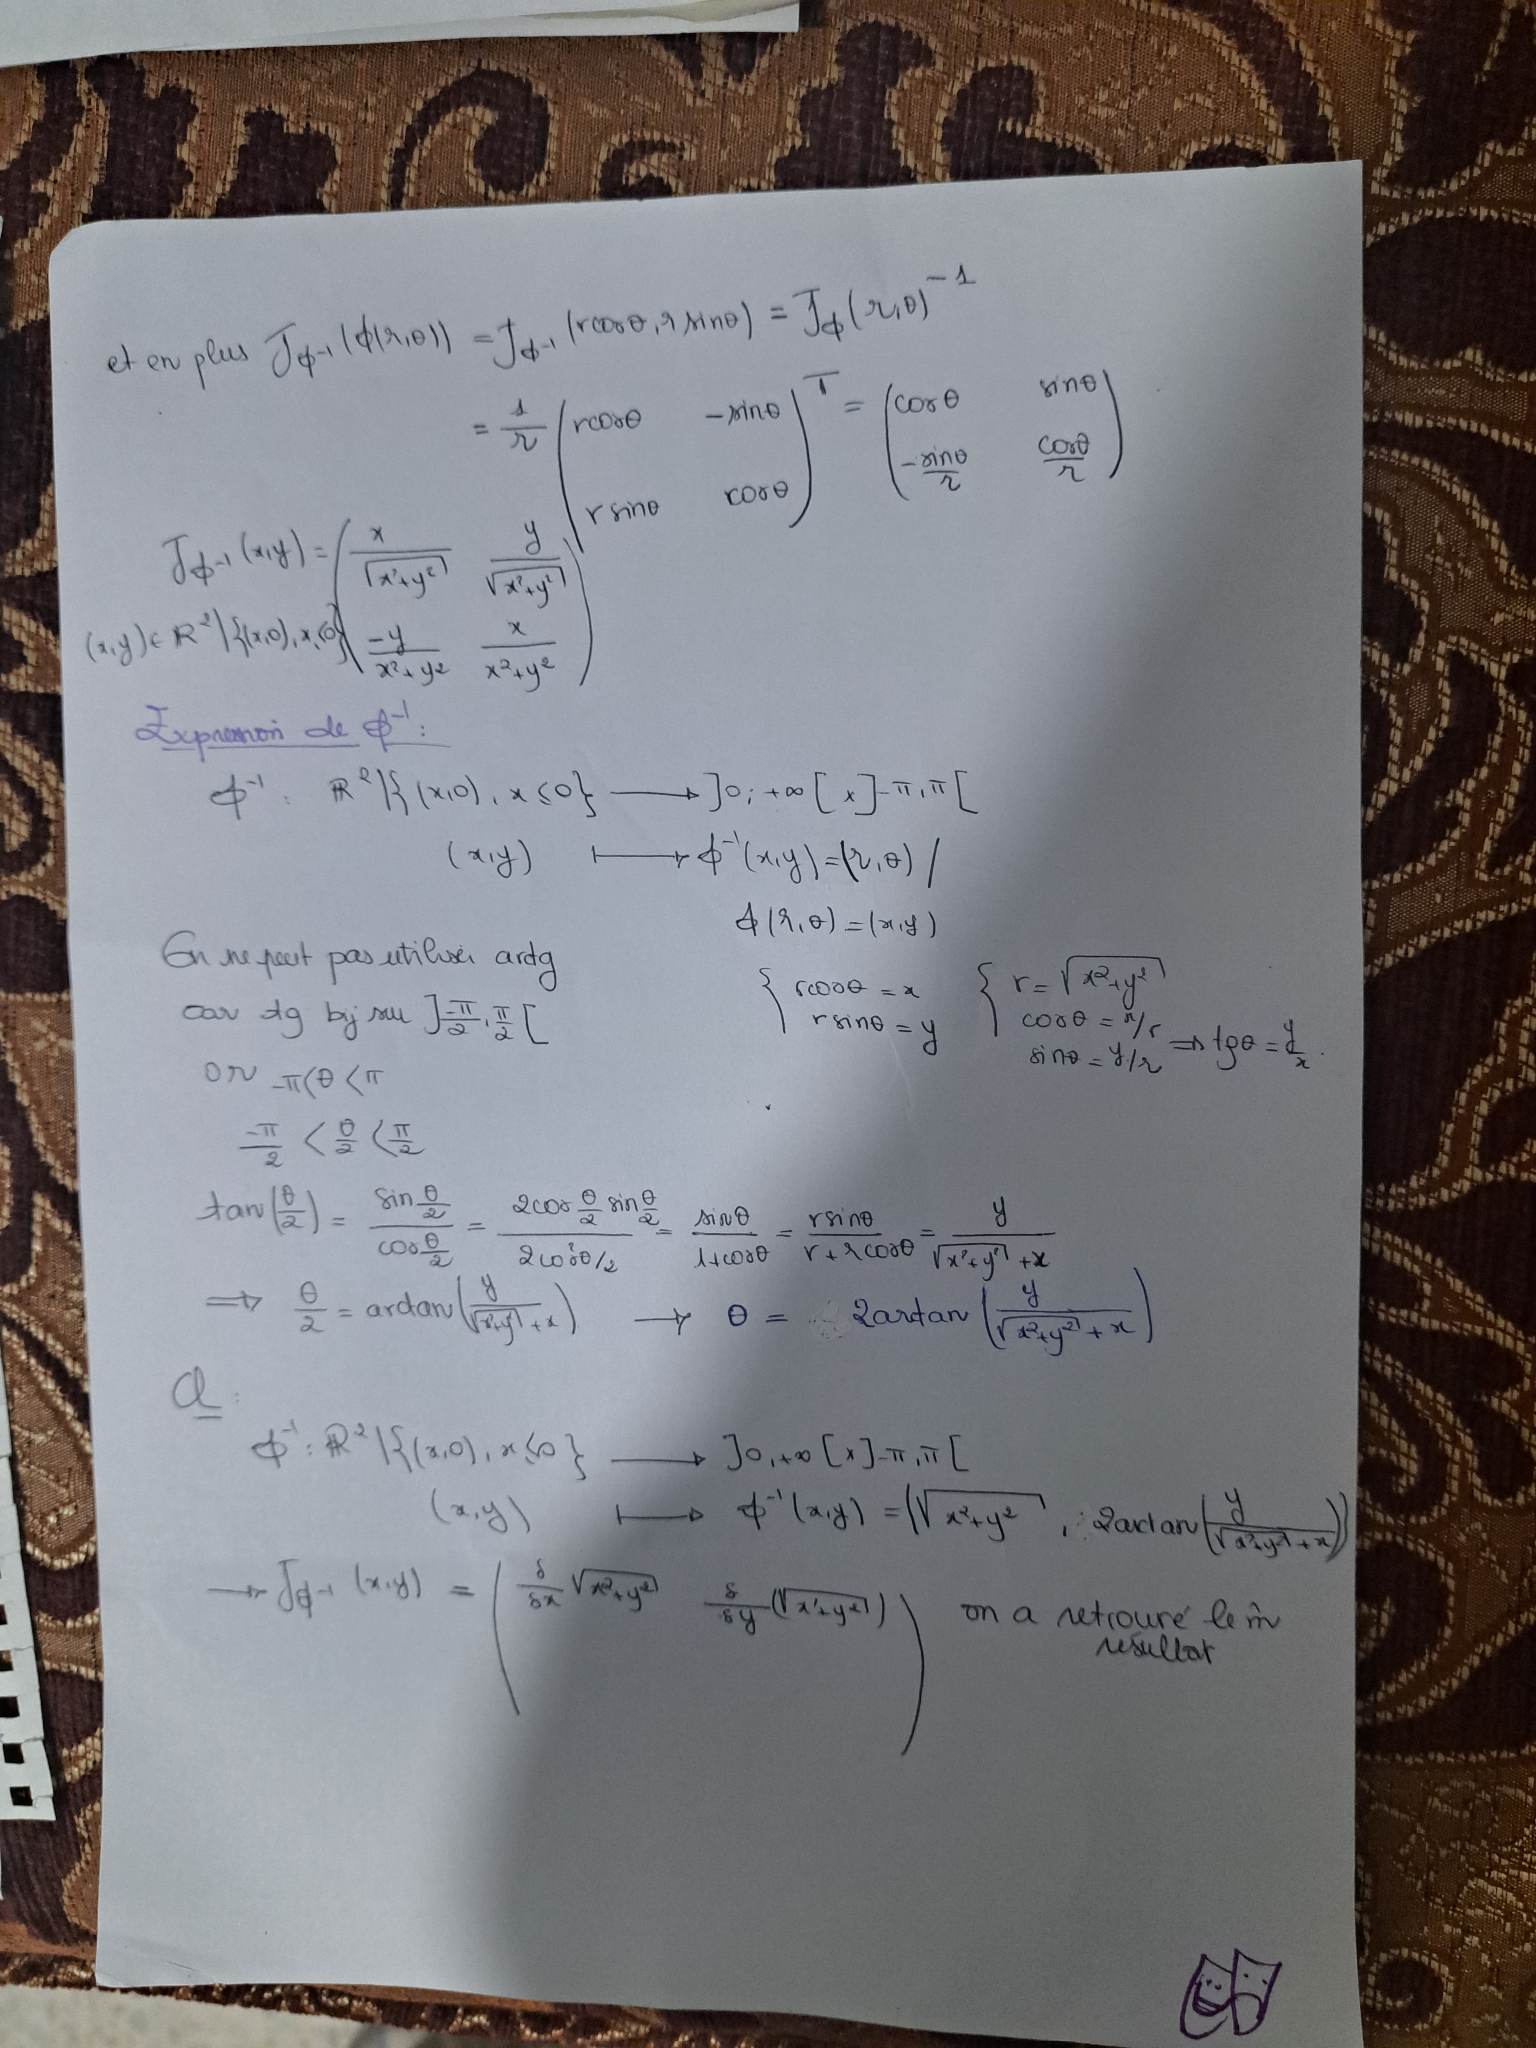 et en plus J_ϕ⁻¹(ϕ(r,θ)) = J_ϕ⁻¹(rcosθ, r sinθ) = J_ϕ(r,θ)⁻¹
= 1/r (rcosθ -sinθ ; r sinθ cosθ)^T = (cosθ sinθ ; -sinθ/r cosθ/r)
J_ϕ⁻¹(x,y) = (x/√(x²+y²) y/√(x²+y²) ; -y/(x²+y²) x/(x²+y²))
(x,y) ∈ ℝ²\{(x,0), x≤0}
Expression de ϕ⁻¹ :
ϕ⁻¹ : ℝ²\{(x,0), x≤0} ⟶ ]0; +∞[ × ]-π, π[
(x,y) ⟼ ϕ⁻¹(x,y) = (r,θ) /
ϕ(r,θ) = (x,y)
{ rcosθ = x ; rsinθ = y { r = √(x²+y²) ; cosθ = x/r ; sinθ = y/r ⇒ tgθ = y/x.
On ne peut pas utiliser arctg
car tg bij sur ]-π/2, π/2[
or -π<θ<π
-π/2 < θ/2 < π/2
tan(θ/2) = sin θ/2 / cos θ/2 = 2cos θ/2 sin θ/2 / 2cos²θ/2 = sinθ/(1+cosθ) = rsinθ/(r+rcosθ) = y/(√(x²+y²)+x)
⟹ θ/2 = arctan(y/(√(x²+y²)+x)) → θ = 2arctan(y/(√(x²+y²)+x))
Cl :
ϕ⁻¹ : ℝ²\{(x,0), x≤0} ⟶ ]0,+∞[×]-π,π[
(x,y) ⟼ ϕ⁻¹(x,y) = (√(x²+y²), 2arctan(y/(√(x²+y²)+x)))
→ J_ϕ⁻¹(x,y) = (δ/δx √(x²+y²) δ/δy (√(x²+y²))) on a retrouvé le m̂
résultat